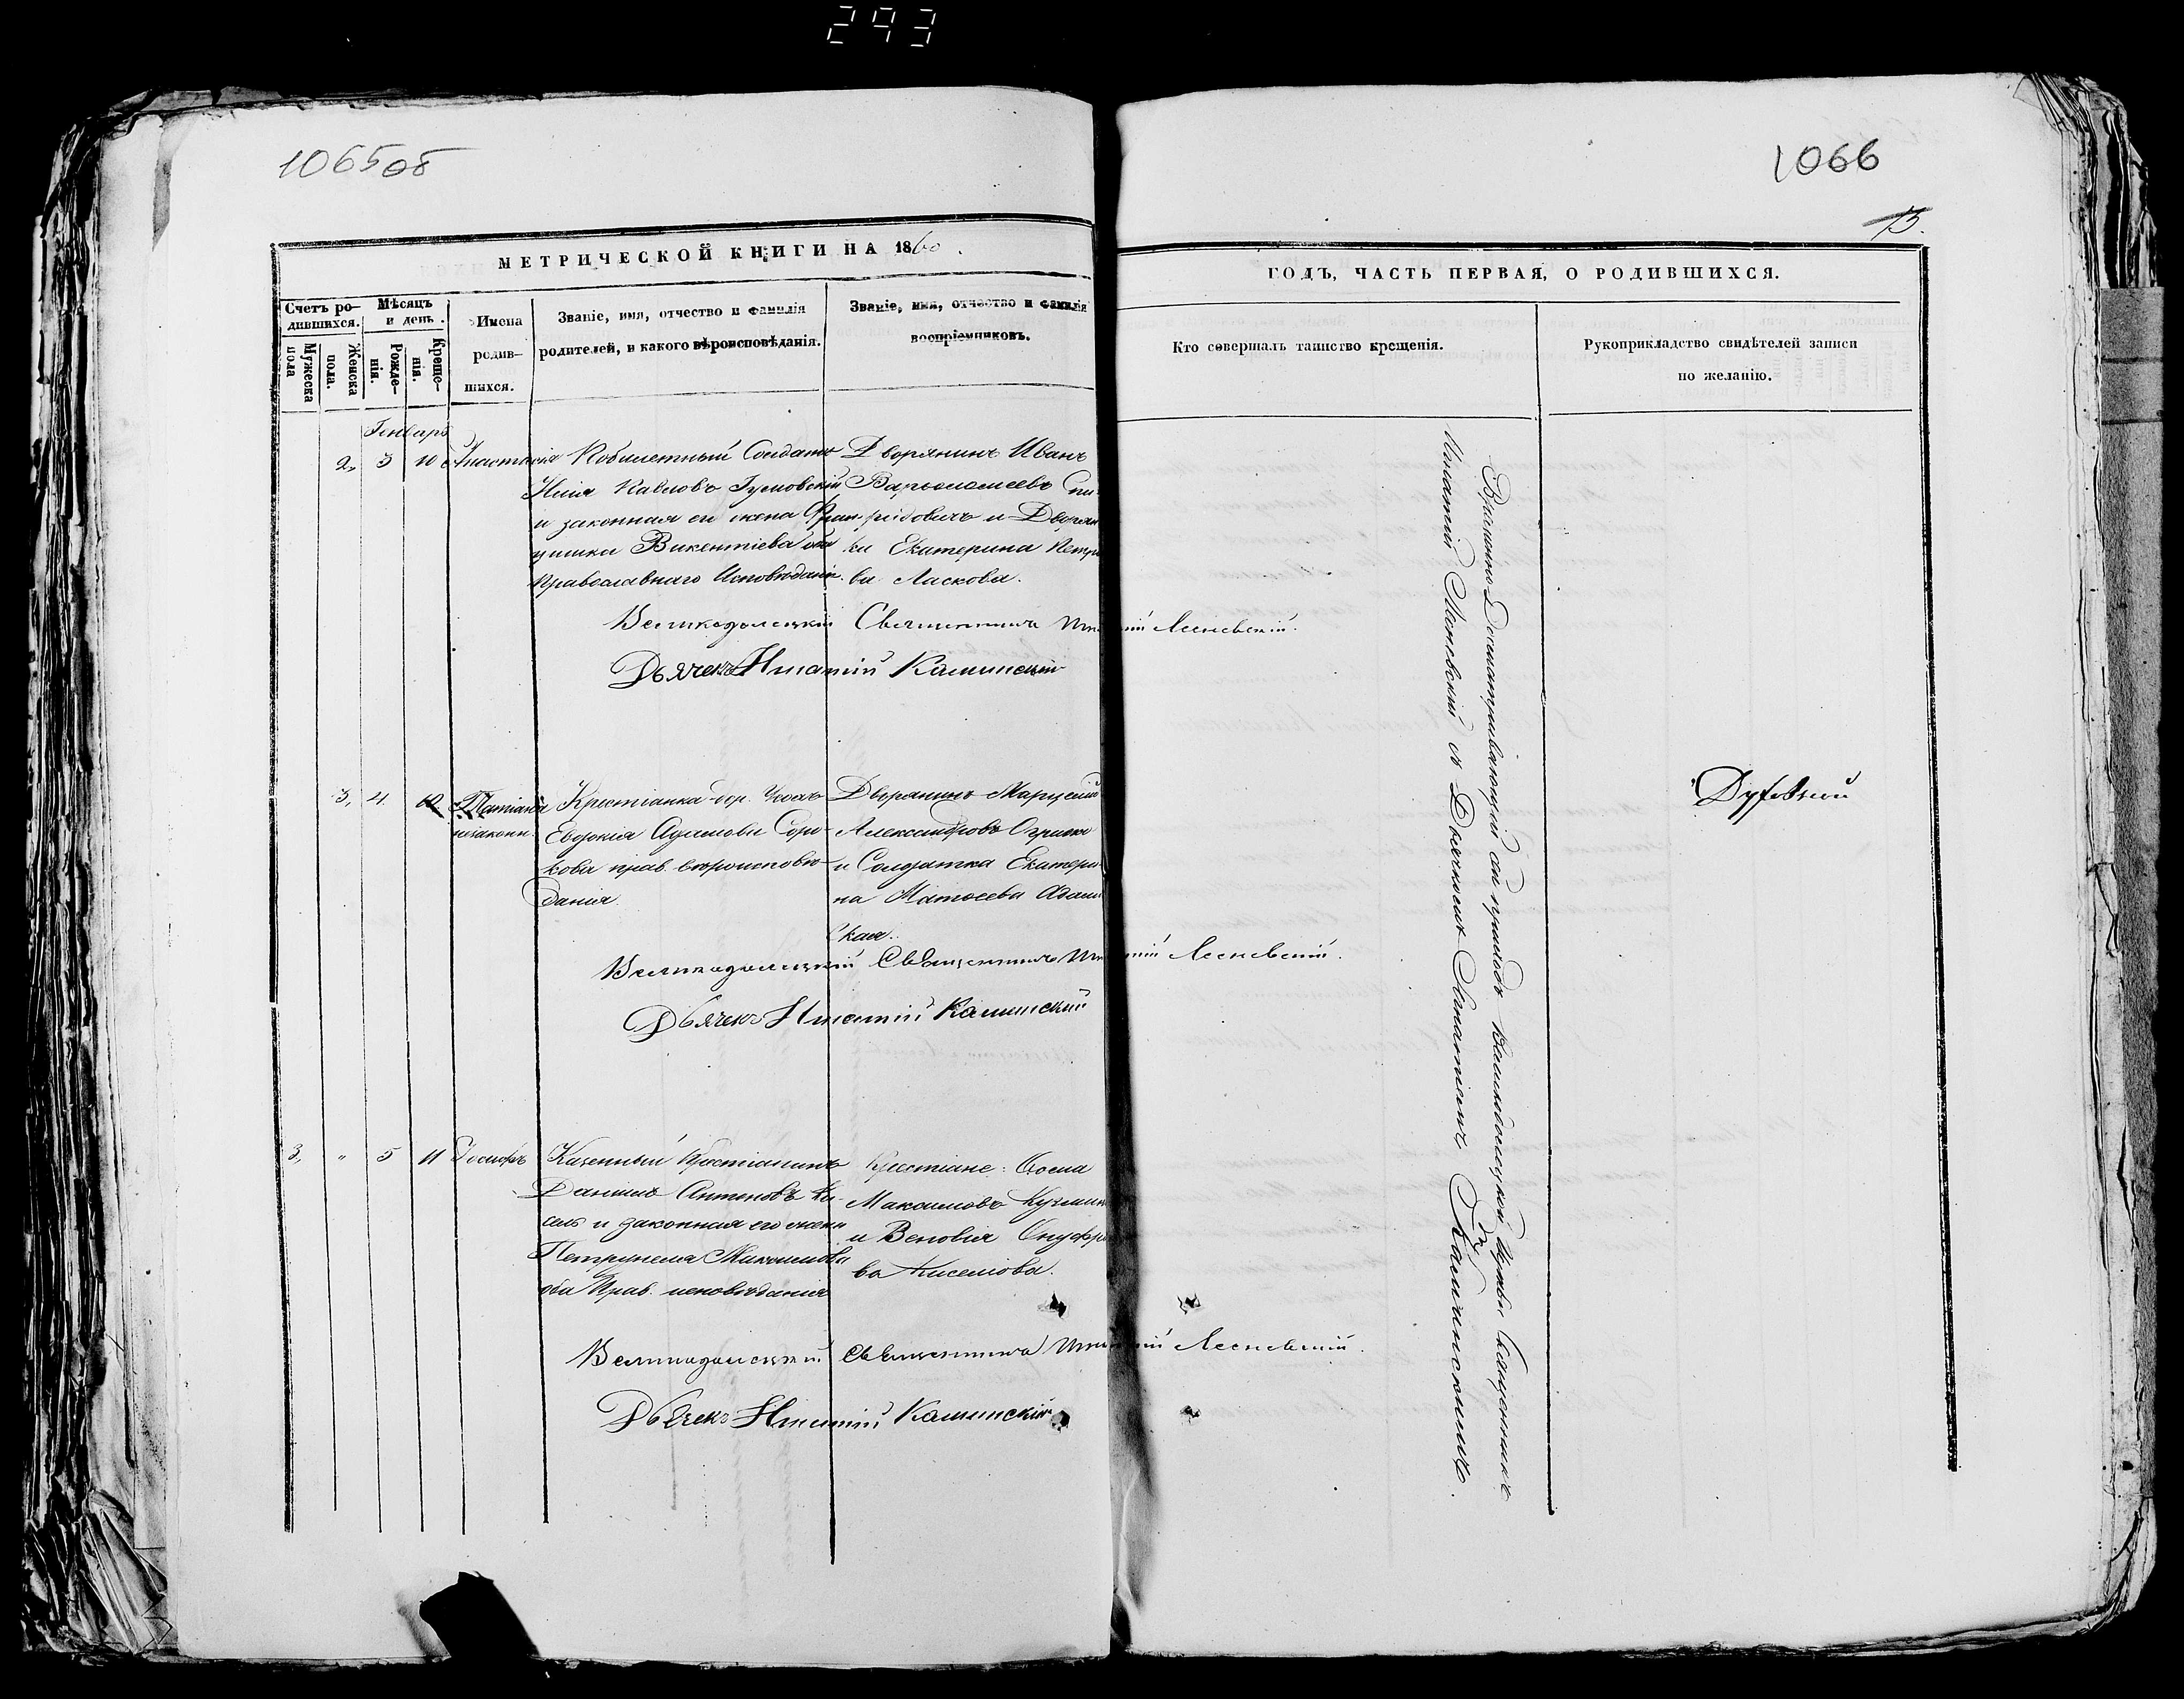 293
1065об
1066
13.
МЕТРИЧЕСКОЙ КНИГИ НА 1860.
ГОДЪ, ЧАСТЬ ПЕРВАЯ, О РОДИВШИХСЯ.
Счетъ ро-
дившихся.
Мужеска
пола
Женска
пола.
Мѣсяцъ
и день.
Рожде-
нія.
Креще-
нія.
Имена
родив-
шихся.
Званіе, имя, отчество и фамилія
родителей, и какого вѣроисповѣданія.
Званіе, имя, отчество и фамилія
воспріемниковъ.
Кто совершалъ таинство крещенія.
Рукоприкладство свидѣтелей записи
по желанію.
Генварь
2, 3 10 Анастасія
Солдатъ
Павловъ Гумовскій
и законная его жена Фран-
цишка Викентіева оба
Православнаго Исповѣданія.
Дворянинъ Иванъ
Варѳоломеевъ Спи-
ридовичъ и Дворян
ка Екатерина Петро
ва Ласкова.
Великодолецкій Священникъ Игнатій Лесневскій.
Дьячекъ Игнатій Калинскій
3, 4 10 Татіана
незаконн.
Крестіанка
Евдокія Адамова Соро-
кова прав. вѣроисповѣ-
данія.
Дворянинъ Марцелій
Александровъ
и Солдатка Екатери-
на Матѳеева Адам
ская.
Великодолецкій Священникъ Игнатій Лесневскій.
Дьячекъ Игнатій Калинскій
3, " 5 11 Іосифъ
Казенный Крестіанинъ
Даніилъ Антоновъ Ки-
сель и законная его жена
Петрунеля Максимова
оба Прав. исповѣданія
Крестіане: Ѳома
Максимовъ Кузмин
и Зеновія Онуфріе
ва Киселова.
Великодолецкій Священникъ Игнатій Лесневскій.
Дьячекъ Игнатій Калинскій
Временно Досматривающій сей приходъ Великодолецкой Церкви Священникъ
Игнатій Лесневскій съ Дьячкомъ Игнатіемъ Калинскимъ.